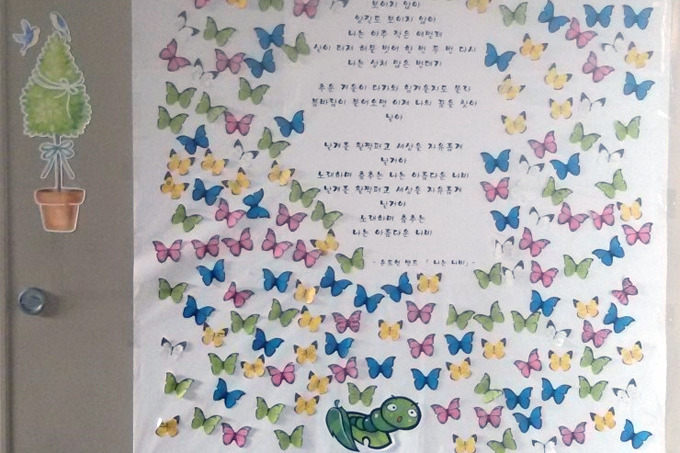 보이지 않아
앞길도 보이지 않아
나는 아주 작은 애벌레
살이 터져 허물 벗어 한 번 두 번 다시
나는 상처 많은 번데기
추운 겨울이 다가와 힘겨울지도 몰라
봄바람이 불어오면 이제 나의 꿈을 찾아
날아
날개를 활짝펴고 세상을 자유롭게
날거야
노래하며 춤추는 나는 아름다운 나비
날개를 활짝펴고 세상을 자유롭게
날거야
노래하며 춤추는
나는 아름다운 나비
- 윤도현 밴드 「 나는 나비」-